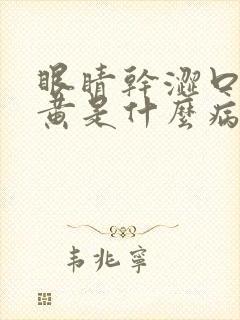 眼睛幹澀口
黃是什麼病
韋兆寧